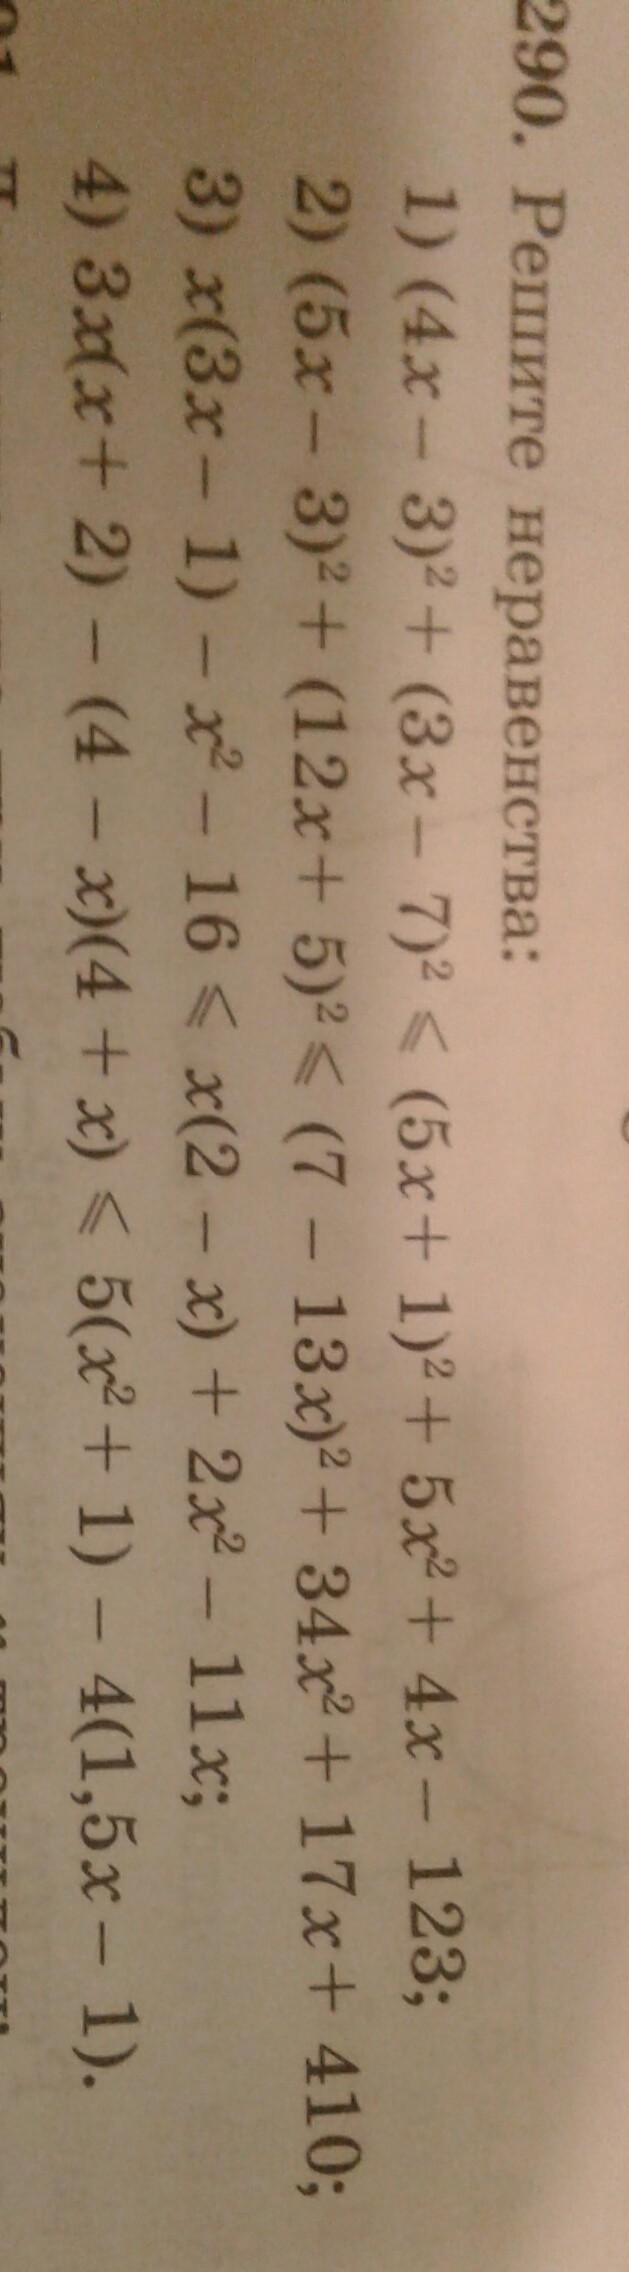 290. Решите неравенства:
1) (4x – 3)² + (3x – 7)² ⩽ (5x + 1)² + 5x² + 4x – 123;
2) (5x – 3)² + (12x + 5)² ⩽ (7 – 13x)² + 34x² + 17x + 410;
3) x(3x – 1) – x² – 16 ⩽ x(2 – x) + 2x² – 11x;
4) 3x(x + 2) – (4 – x)(4 + x) ⩽ 5(x² + 1) – 4(1,5x – 1).